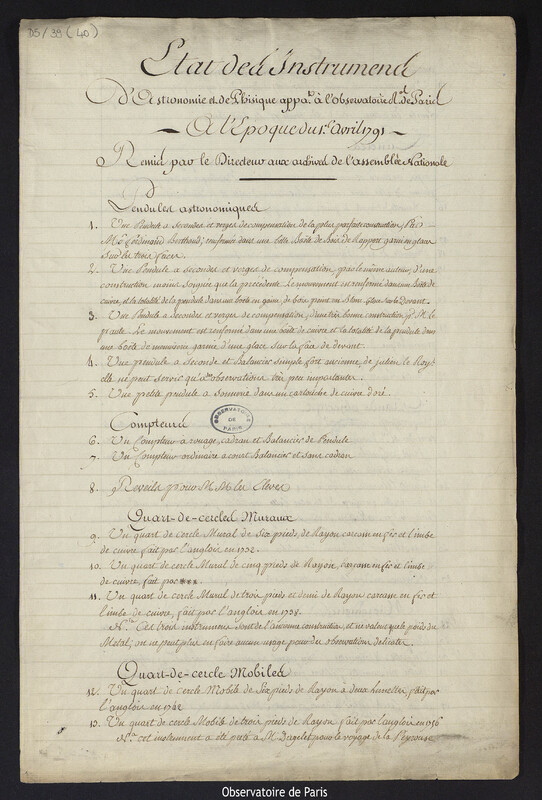 D5/39 (40)
Etat des Instrumens
D'Astronomie et de Phisique appns. à l'Observatoire Rl. de Paris
A l'Epoque du 1er. avril 1791
Remis par le Directeur aux archives de l'assemblée Nationale
Pendules astronomiques
1. Une Pendule a secondes et verges de compensation de la plus parfaite construction, par
Mr. ferdinand Berthoud; enfermée dans une belle Boëte de Bois de Rapport garnie en glaces
sur les trois faces.
2. Une Pendule a secondes et verges de compensation, par le même auteur, d'une
construction moins soignée que la précédente. Le mouvement est renfermé dans une Boëte de
cuivre, et la totalité de la pendule dans une boëte en gaine, de bois, glace sur le Devant.
3. Une Pendule a secondes et verges de compensation, d'une très bonne construction p. M. le
paute. Le mouvement est renfermé dans une boëte de cuivre et la totalité de la pendule dans
une boëte de menuiserie garnie d'une glace sur la face de devant.
4. Une pendule a seconde et Balancier simple fort ancienne, de julien le Roy;
elle ne peut servir qu'à des observations très peu importantes.
5. Une petite pendule a sonnerie dans un cartouche de cuivre doré.
Compteurs
OBSERVATOIRE DE PARIS
6. Un Compteur à rouage, cadran et Balancier de Pendule
7. Un Compteur ordinaire a court Balancier et sans cadran
8. Reveils pour MM. les Eleves
Quart-de-cercles Muraux
9. Un quart de cercle Mural de Six pieds de Rayon carcasse en fer et limbe
de cuivre fait par l'anglois en 1732.
10. Un quart de cercle Mural de cinq pieds de Rayon, carcasse en fer et limbe
de cuivre, fait par ***
11. Un quart de cercle Mural de trois pieds et demi de Rayon carcasse en fer et
limbe de cuivre, fait par l'anglois en 1738.
Na. Ces trois instrumens sont de l'ancienne construction, et ne valent que le poids du
Métal; on ne peut plus en faire aucun usage pour des observations délicates.
Quart-de-cercle Mobiles
12. Un quart de cercle Mobile de Six pieds de Rayon à deux Lunettes, fait par
l'anglois en 1742
13. Un quart de cercle Mobile de trois pieds de Rayon fait par l'anglois en 1756
Na. cet instrument a été preté a M. Dagelet pour le voyage de la Peyrouse
Observatoire de Paris